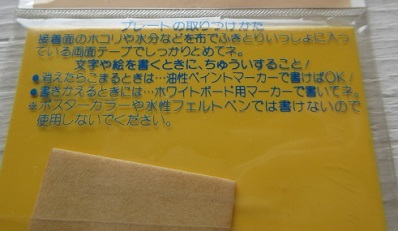 プレートの取りつけかた
接着面のホコリや水分などを布でふきとりいっしょに入っ
ている両面テープでしっかりとめてネ。
文字や絵を書くときに、ちゅういすること!
●消えたらこまるときは…油性ペイントマーカーで書けばOK!
●書きかえるときには…ホワイトボード用マーカーで書いてネ。
※ポスターカラーや水性フェルトペンでは書けないので
使用しないでください。